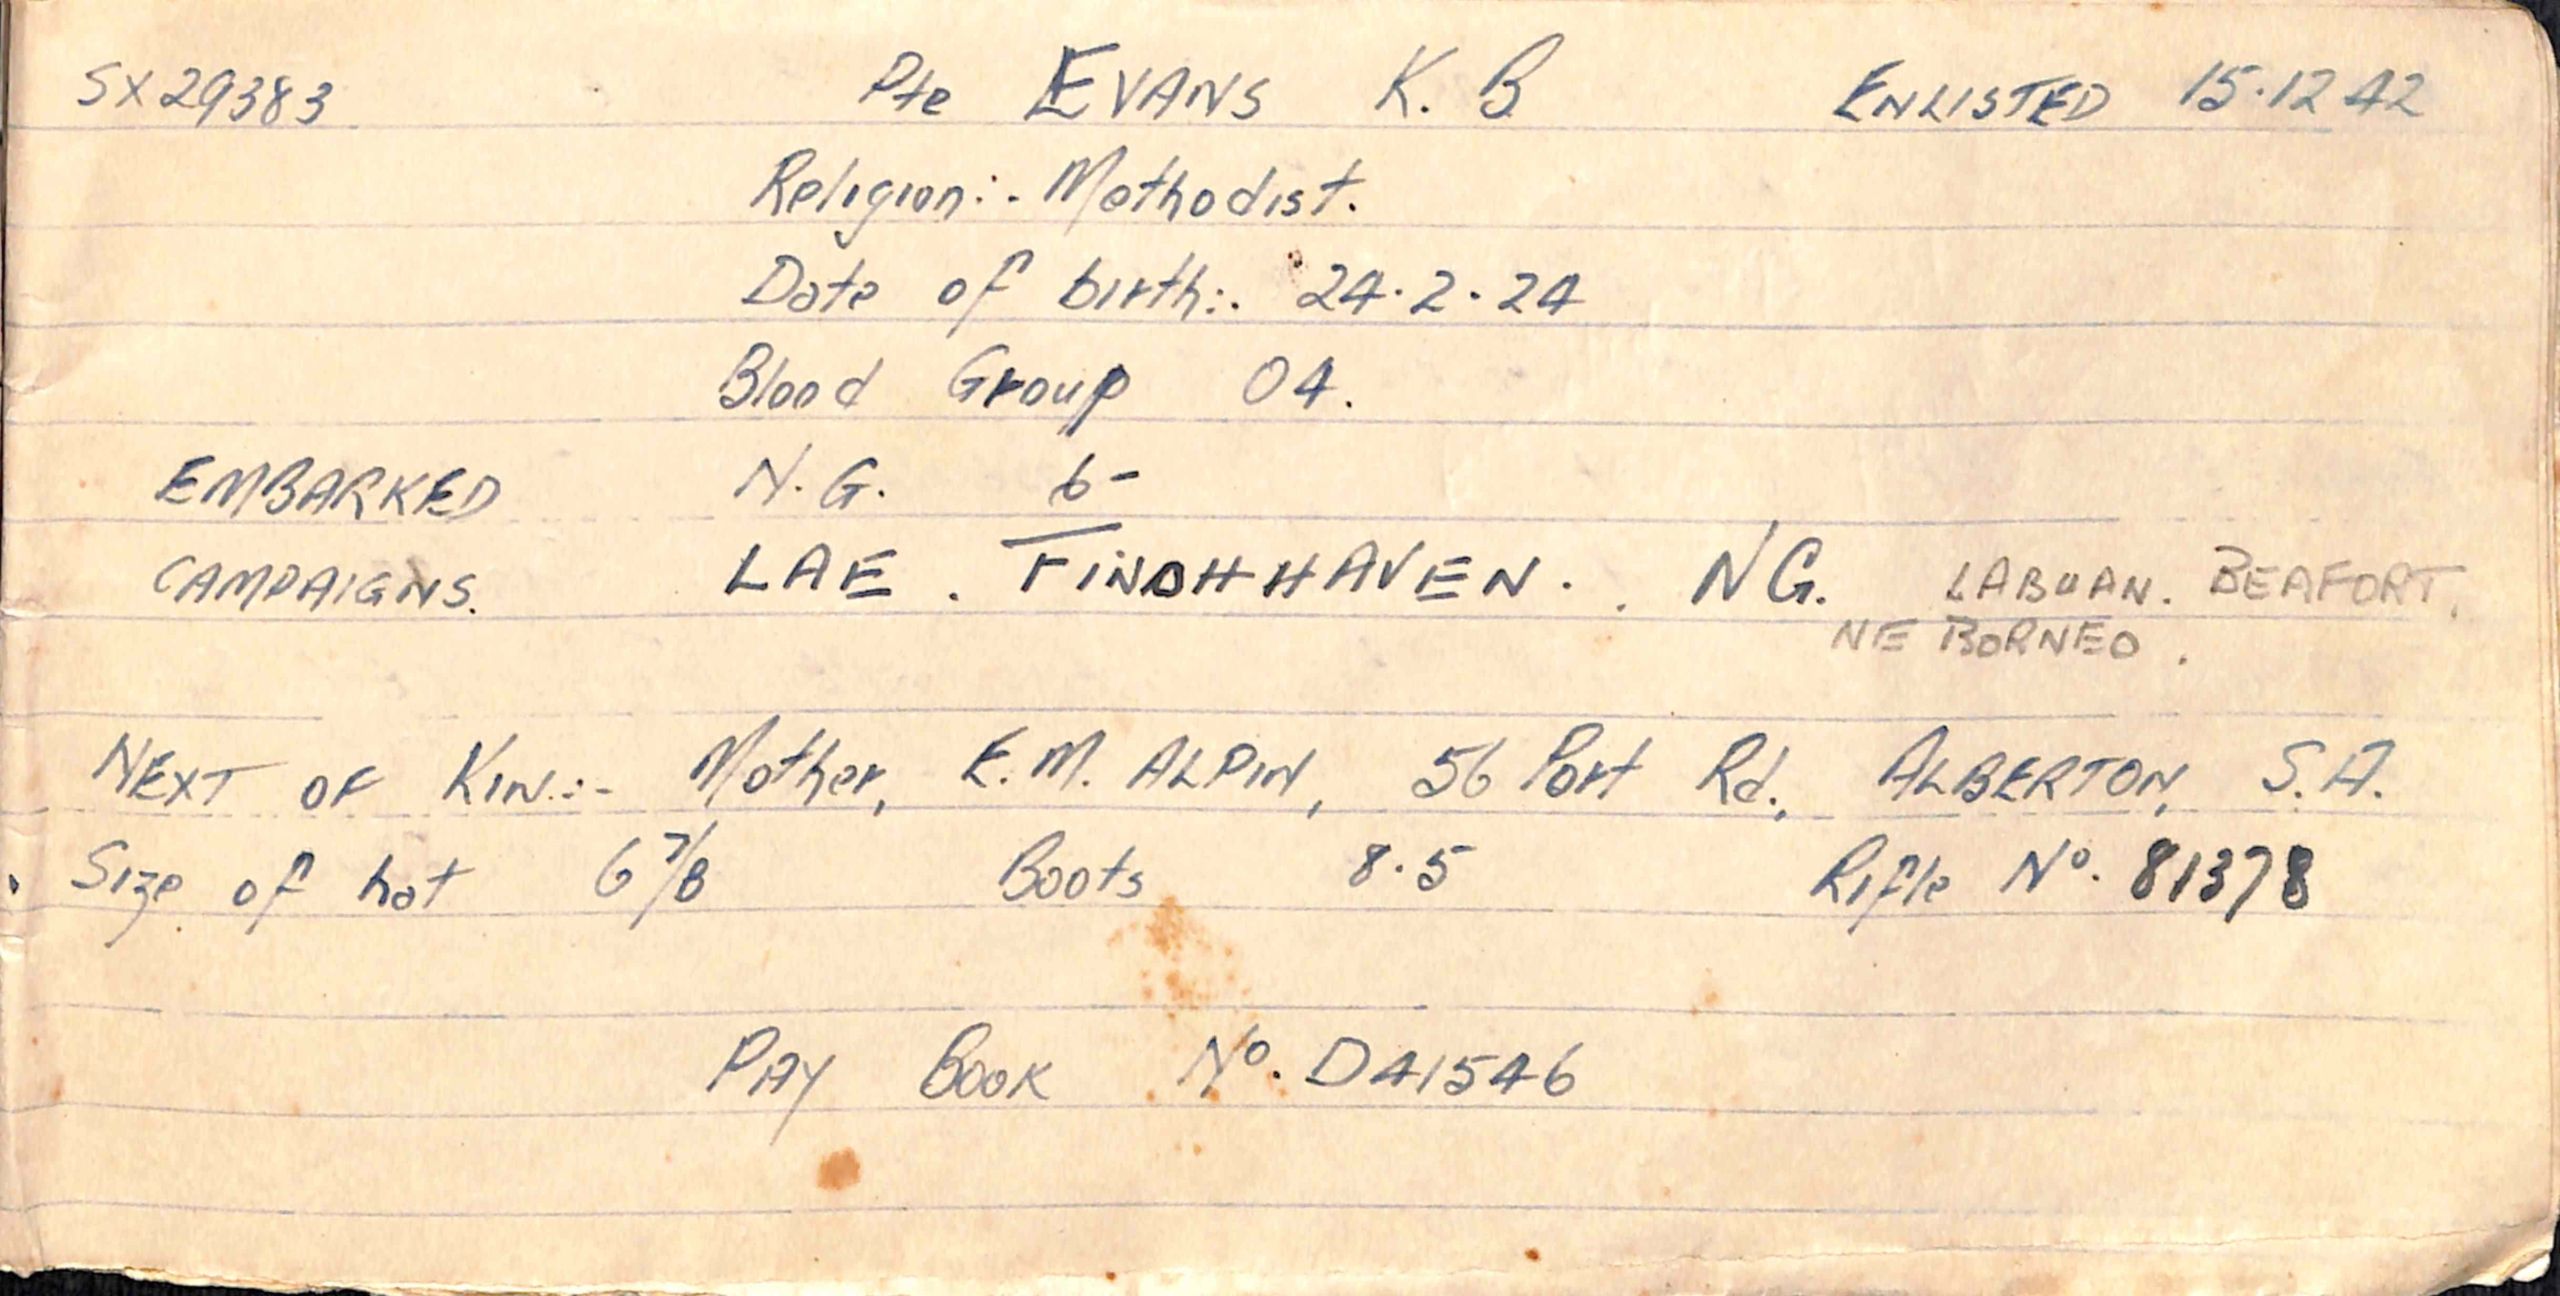 SX29383 Pte EVANS K. B ENLISTED 15.12 42
Religion:- Methodist.
Date of birth:. 24.2.24
Blood Group O4.
EMBARKED N.G. 6-
CAMPAIGNS. LAE. FINDHHAVEN. . NG. LABUAN. BEAFORT.
NE BORNEO.
NEXT OF KIN:- Mother, E.M. ALPIN, 56 Port Rd., ALBERTON, S.A.
Size of hat 6 7/8 Boots 8.5 Rifle No. 81378
PAY BOOK No. D41546